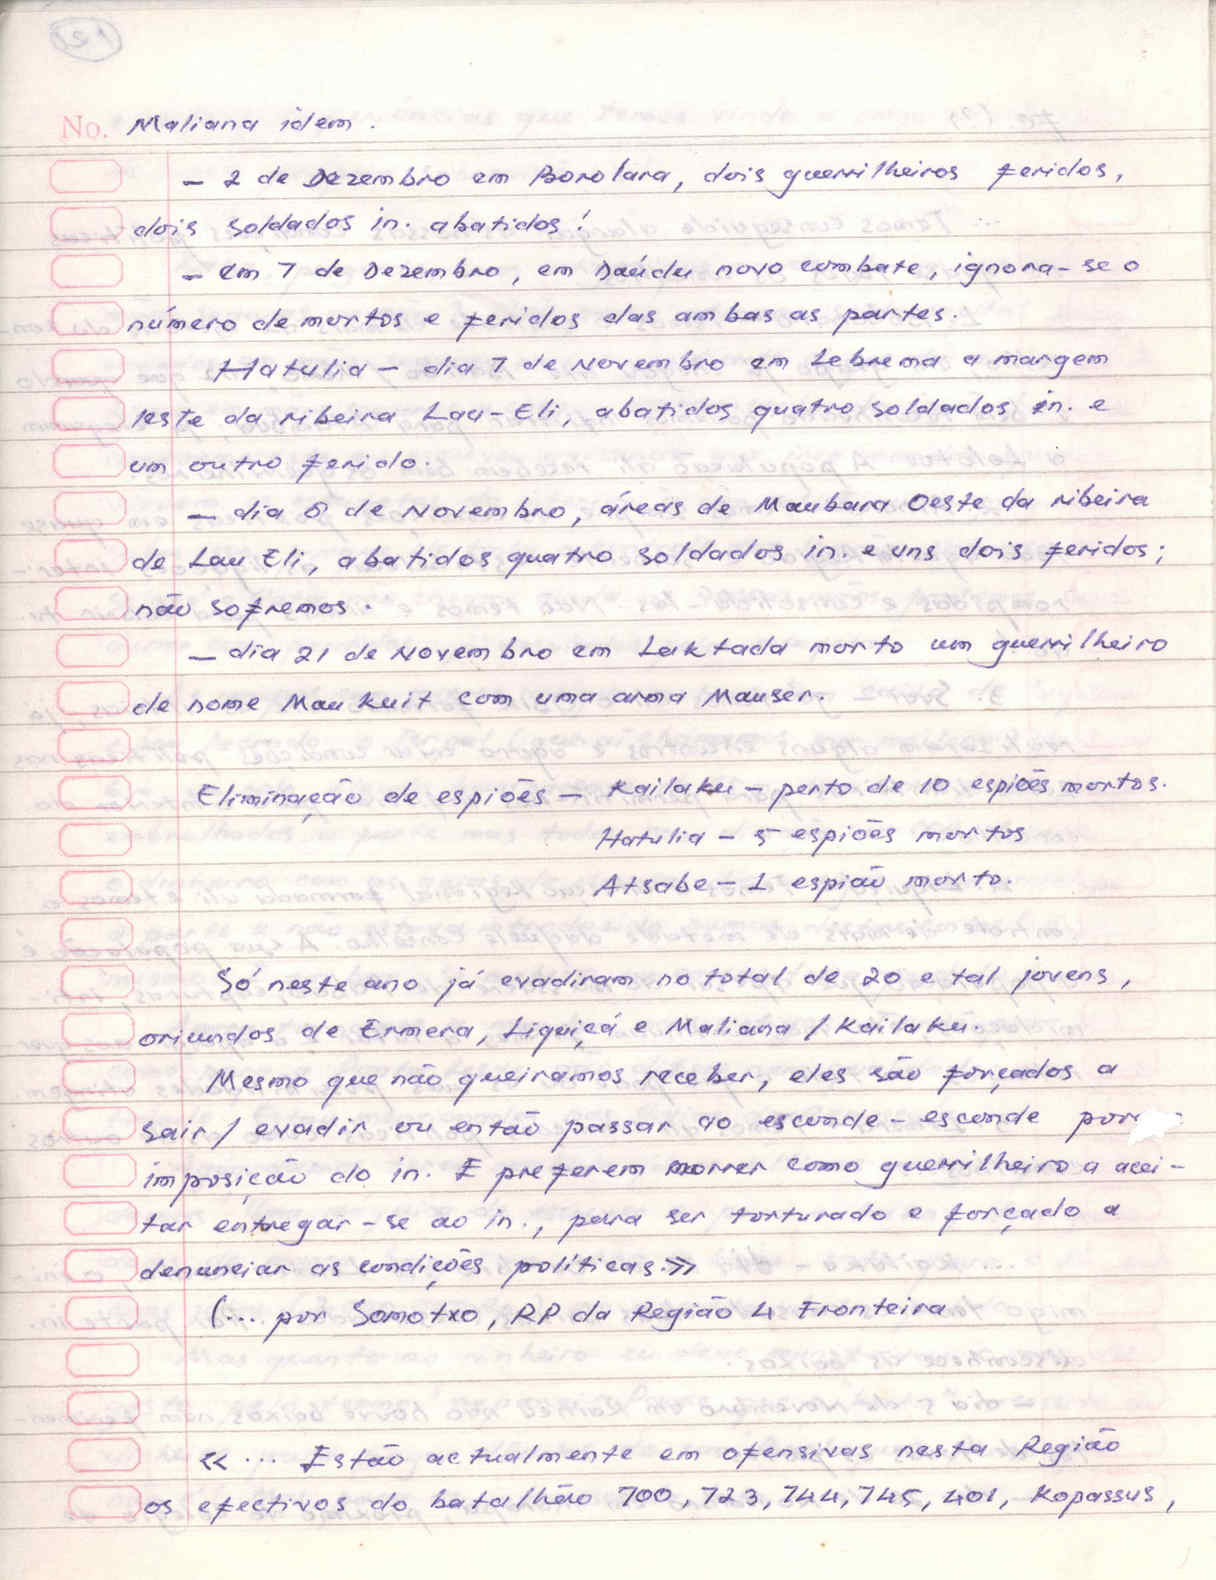 No. Maliana idem.
- 2 de Dezembro em Borolara, dois guerrilheiros feridos,
dois soldados in. abatidos!
- Em 7 de Dezembro, em Daúdu novo combate, ignora-se o
número de mortos e feridos das ambas as partes.
Hatulia - dia 7 de Novembro em Lebrema a margem
leste da ribeira Lau-Eli, abatidos quatro soldados in. e
um outro ferido.
- dia 8 de Novembro, áreas de Maubara Oeste da ribeira
de Lau Eli, abatidos quatro soldados in. e uns dois feridos;
não sofremos.
- dia 21 de Novembro em Laktada morto um guerrilheiro
de nome Mau Kuit com uma arma Mauser.
Eliminação de espiões - Kailaku - perto de 10 espiões mortos.
Hatulia - 5 espiões mortos
Atsabe - 1 espião morto.
Só neste ano já evadiram no total de 20 e tal jovens,
oriundos de Ermera, Liquiçá e Maliana / Kailaku.
Mesmo que não queiramos receber, eles são forçados a
sair / evadir ou então passar ao esconde-esconde por
imposição do in. E preferem morrer como guerrilheiro a acei-
tar entregar-se ao in., para ser torturado e forçado a
denunciar as condições políticas.»
(... por Somotxo, RP da Região 4 Fronteira
«... Estão actualmente em ofensivas nesta Região
os efectivos do batalhão 700, 723, 744, 745, 401, Kopassus,